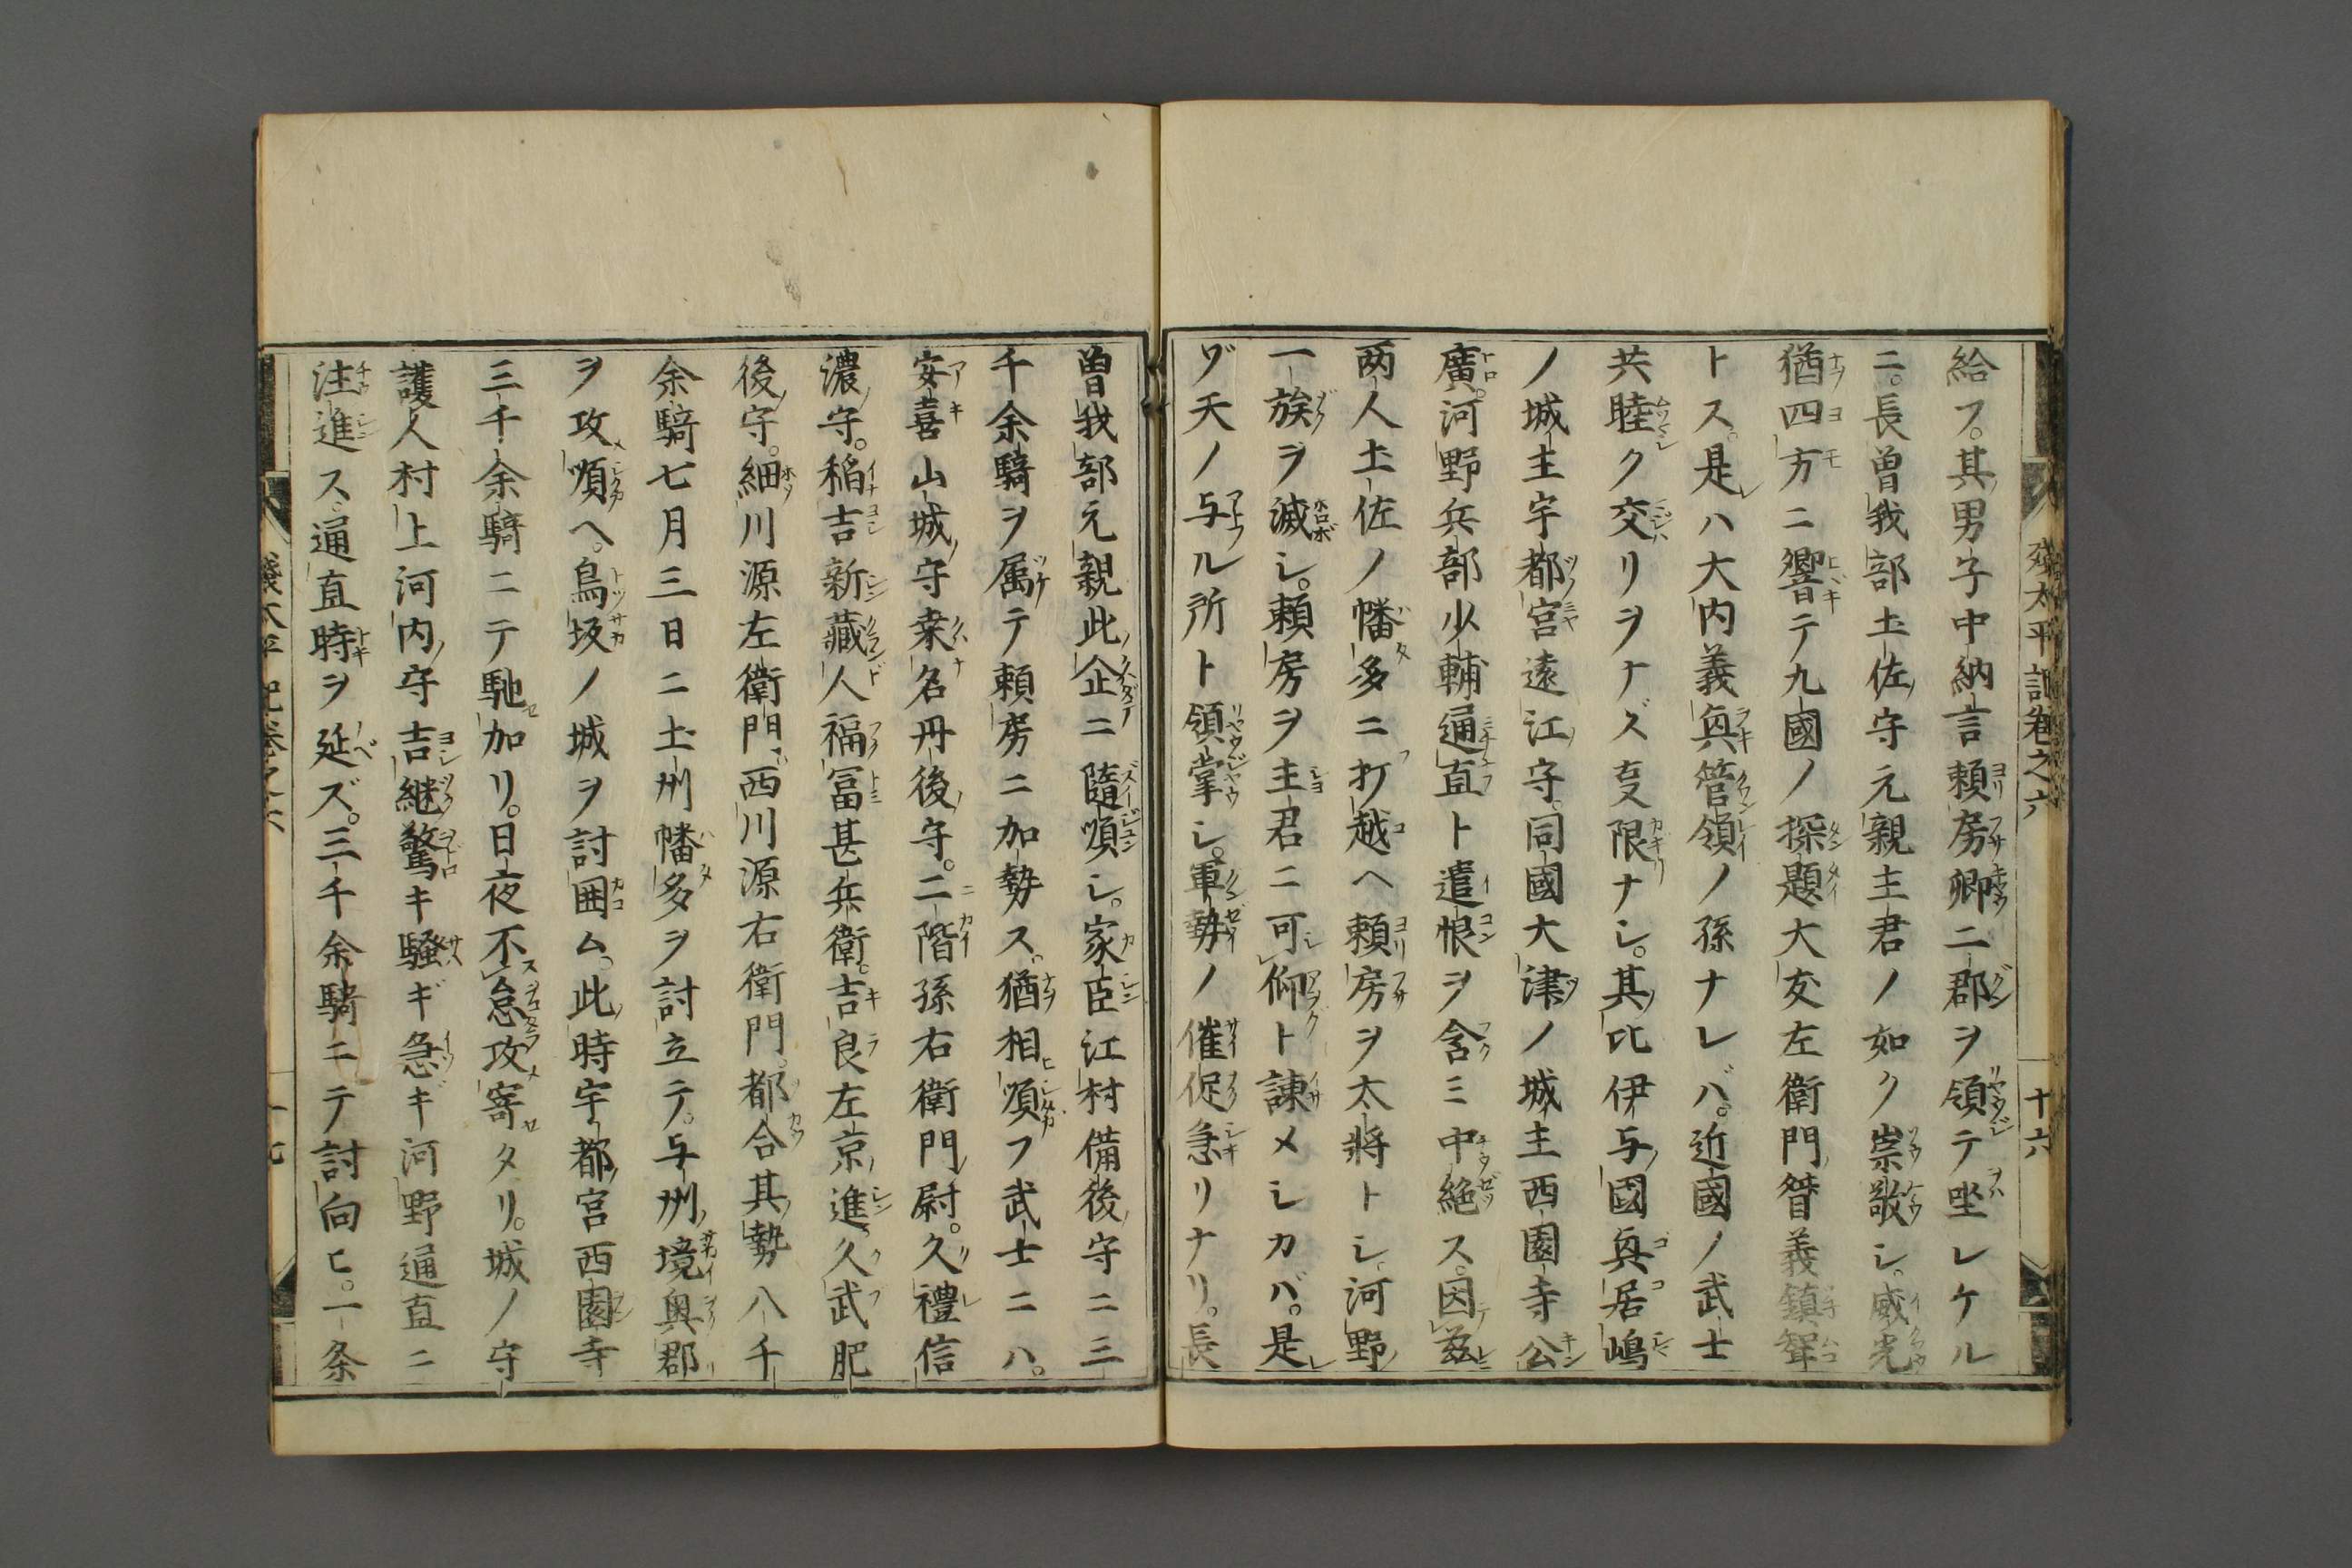 給フ。其男子中納言頼房卿二郡ヲ領テ坐レケル
ニ。長曽我部土佐守元親主君ノ如ク崇敬シ。威光
猶四方ニ響テ九國ノ探題大友左衛門督義鎮聟
トス。是ハ大内義興管領ノ孫ナレバ。近國ノ武士
共睦ク交リヲナズ叓限ナシ。其比伊与國興居嶋
ノ城主宇都宮遠江守。同國大津ノ城主西園寺公
廣。河野兵部少輔通直ト遺恨ヲ含ミ中絶ス。因茲
両人土佐ノ幡多ニ打越ヘ頼房ヲ太將トシ。河野
一族ヲ滅シ。頼房ヲ主君ニ可仰ト諌メシカバ。是
ゾ天ノ与ル所ト領掌シ。軍勢ノ催促急リナリ。長
曽我部元親此企ニ隨順シ。家臣江村備後守ニ三
千余騎ヲ属テ頼房ニ加勢ス。猶相順フ武士ニハ。
安喜山城守桒名丹後守。二階孫右衛門尉。久禮信
濃守。稲吉新藏人福冨甚兵衛。吉良左京進久武肥
後守。細川源左衛門西川源右衛門。都合其勢八千
余騎七月三日ニ土州幡多ヲ討立テ。与州境奥郡
ヲ攻順ヘ。鳥坂ノ城ヲ討囲ム。此時宇都宮西園寺
三千余騎ニテ馳加リ。日夜不怠攻寄タリ。城ノ守
護人村上河内守吉継驚キ騒ギ急ギ河野通直ニ
注進ス。通直時ヲ延ズ。三千余騎ニテ討向ヒ。一条
残太平記巻之六
十六